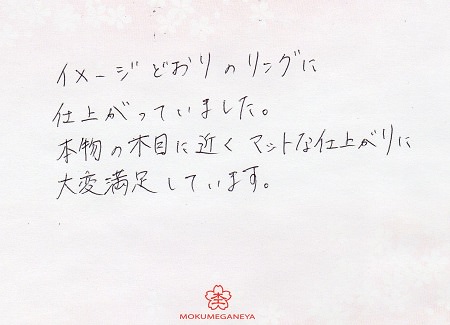 イメージどおりのリングに
仕上がっていました。
本物の木目に近くマットな仕上がりに
大変満足しています。
MOKUMEGANEYA